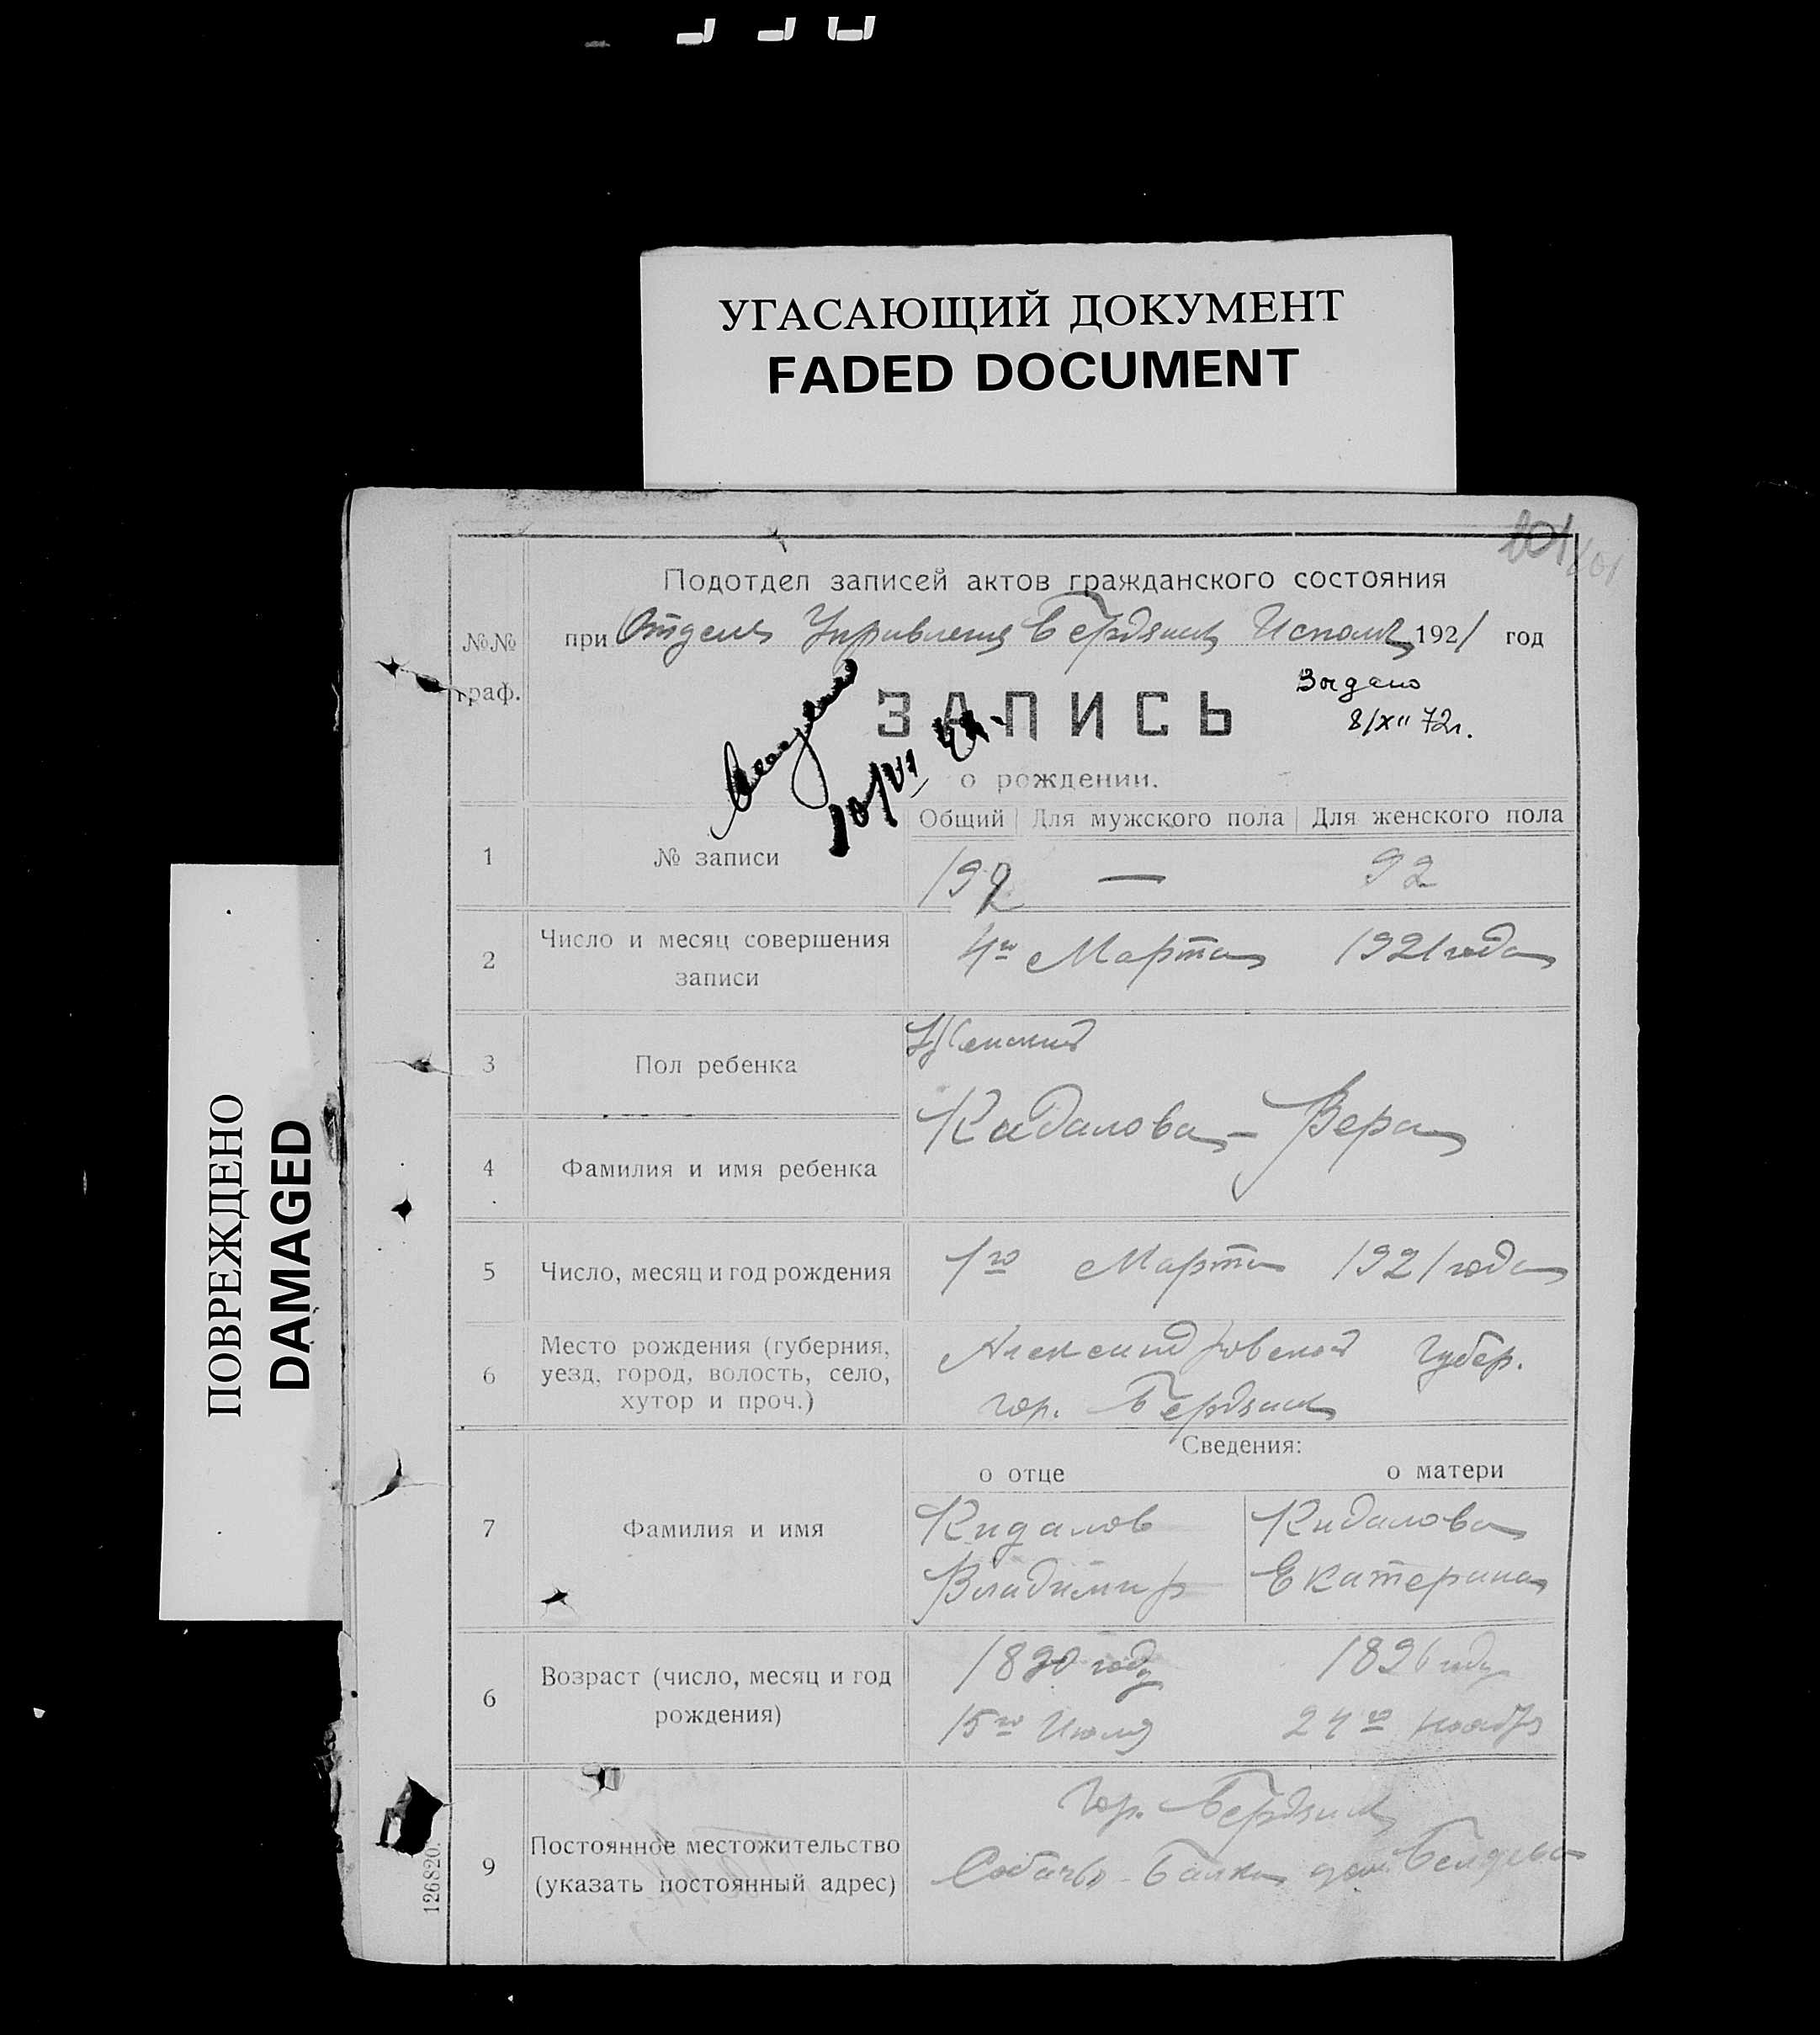 УГАСАЮЩИЙ ДОКУМЕНТ
FADED DOCUMENT
ПОВРЕЖДЕНО
DAMAGED
101
Подотдел записей актов гражданского состояния
№№ граф.
при Отделе Управления Бердянск Исполк 1921 год
Выдано
8/XII 72г.
ЗАПИСЬ
о рождении.
Общий Для мужского пола Для женского пола
1 № записи 192 — 92
2 Число и месяц совершения записи 4го Марта 1921 года
3 Пол ребенка Женский
4 Фамилия и имя ребенка Кидалова - Вера
5 Число, месяц и год рождения 1го Марта 1921 года
6 Место рождения (губерния, уезд, город, волость, село, хутор и проч.) Александровской Губер.
гор. Бердянск
Сведения:
о отце о матери
7 Фамилия и имя Кидалов Кидалова
Владимир Екатерина
6 Возраст (число, месяц и год рождения) 1890 году 1896 году
15го Июля 24го ноября
9 Постоянное местожительство (указать постоянный адрес) Гор. Бердянск
Собачья Балка дом
126820.